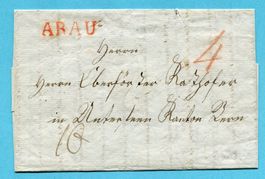 ARAU
4
Herrn
Herrn Oberförster Kasthofer
in Unterseen Kanton Bern
10